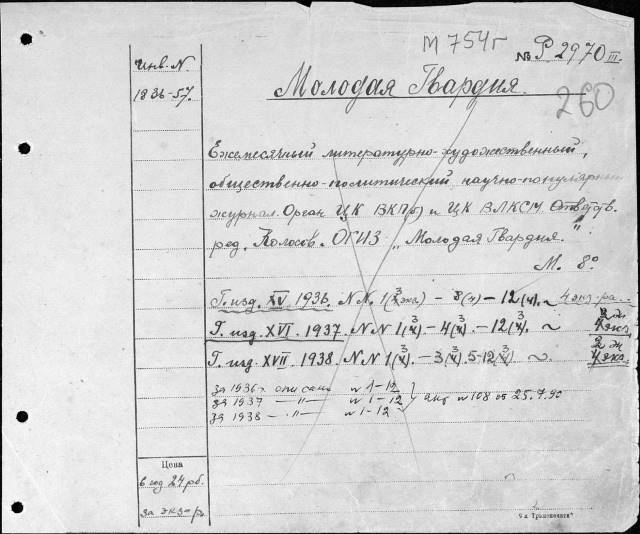 М 754г
№ Р 2970 III
Инв. N.
1836-57.
Молодая Гвардия.
260
Ежемесячный литературно-художественный,
общественно-политический, научно-популярный
журнал. Орган ЦК ВКП(б) и ЦК ВЛКСМ. Ответств.
ред. Колосов. ОГИЗ „Молодая Гвардия."
М. 8º
Г. изд. XV. 1936. N.N. 1(3 экз) – 8(4) – 12(4). ~ 4 экз-ра
Г. изд. XVI. 1937. N N 1(3) – 4(3). – 12(3). ~ 4 экз.
2 эк
Г. изд. XVII. 1938. N N 1(3) – 3(3). 5-12(3) ~. 4 экз.
за 1936г описано N 1-12
за 1937 –"– N 1-12
за 1938 –"– N 1-12
акт N 108 от 25.7.90
Цена
в год 24 рб.
за экз-р